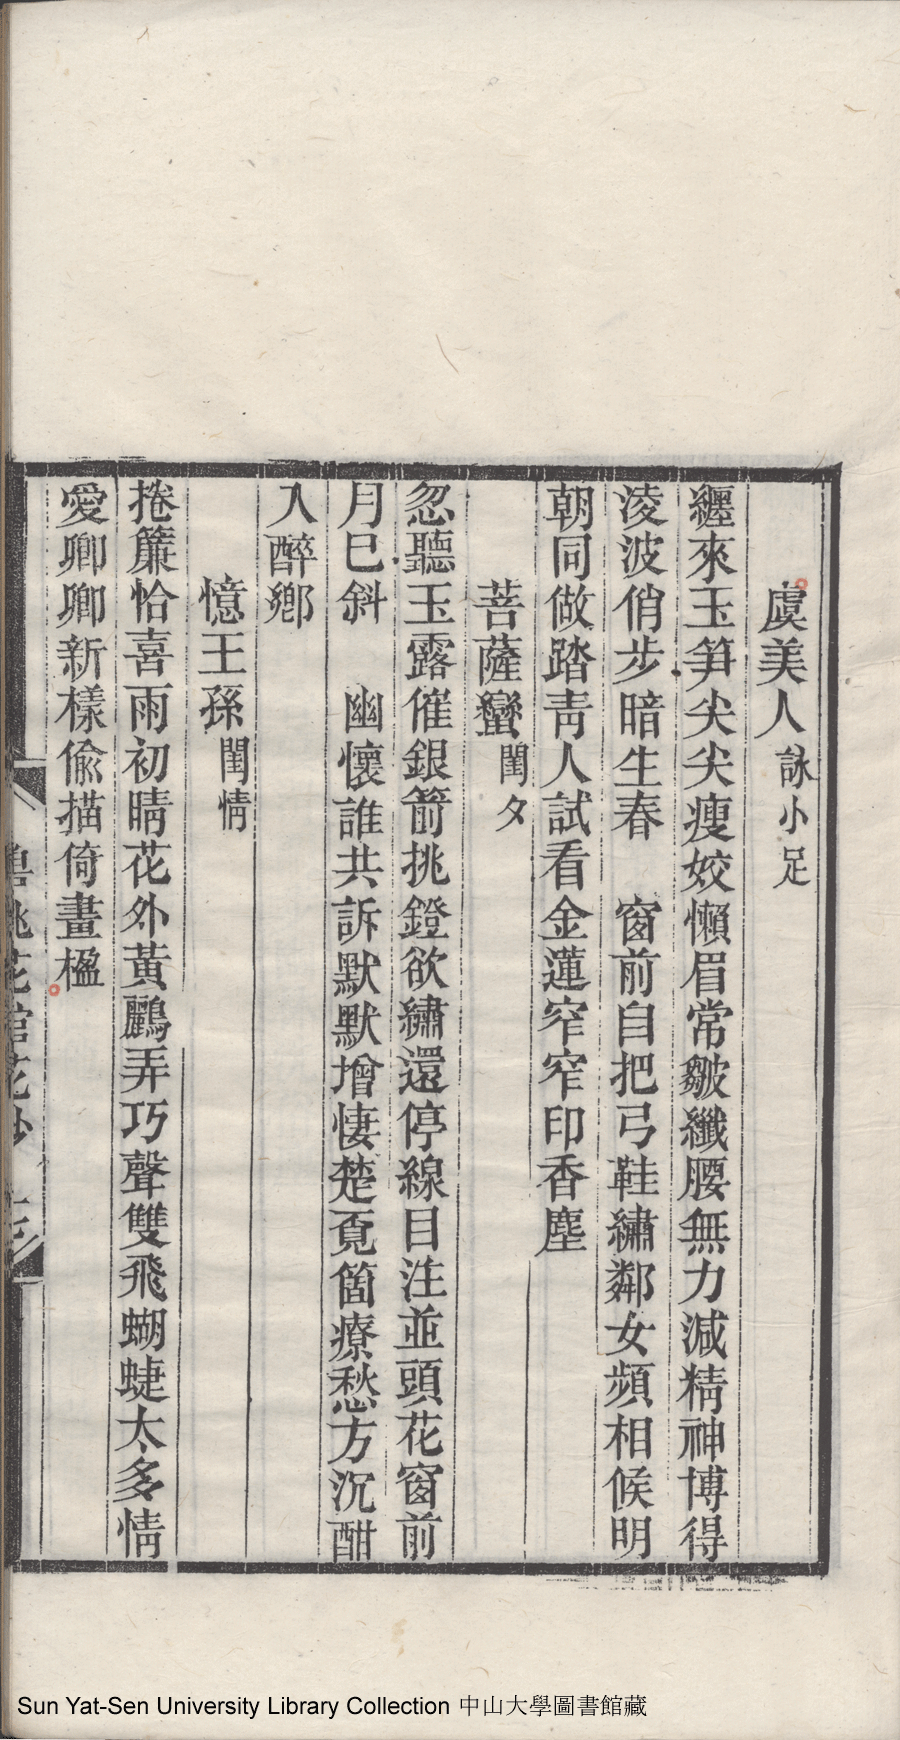 虞美人 詠小足
纒來玉笋尖尖瘦姣懶眉常皺纖腰無力減精神博得
淩波俏步暗生春　窗前自把弓鞋繡鄰女頻相候明
朝同做踏青人試看金蓮窄窄印香塵
菩薩蠻 閨夕
忽聽玉露催銀箭挑鐙欲繡還停線目注並頭花窗前
月巳斜　幽懷誰共訴默默增悽楚覔箇療愁方沉酣
入醉鄉
憶王孫 閨情
捲簾恰喜雨初晴花外黃鸝弄巧聲雙飛蝴蜨太多情
愛卿卿新樣偷描倚畫楹
Sun Yat-Sen University Library Collection 中山大學圖書館藏